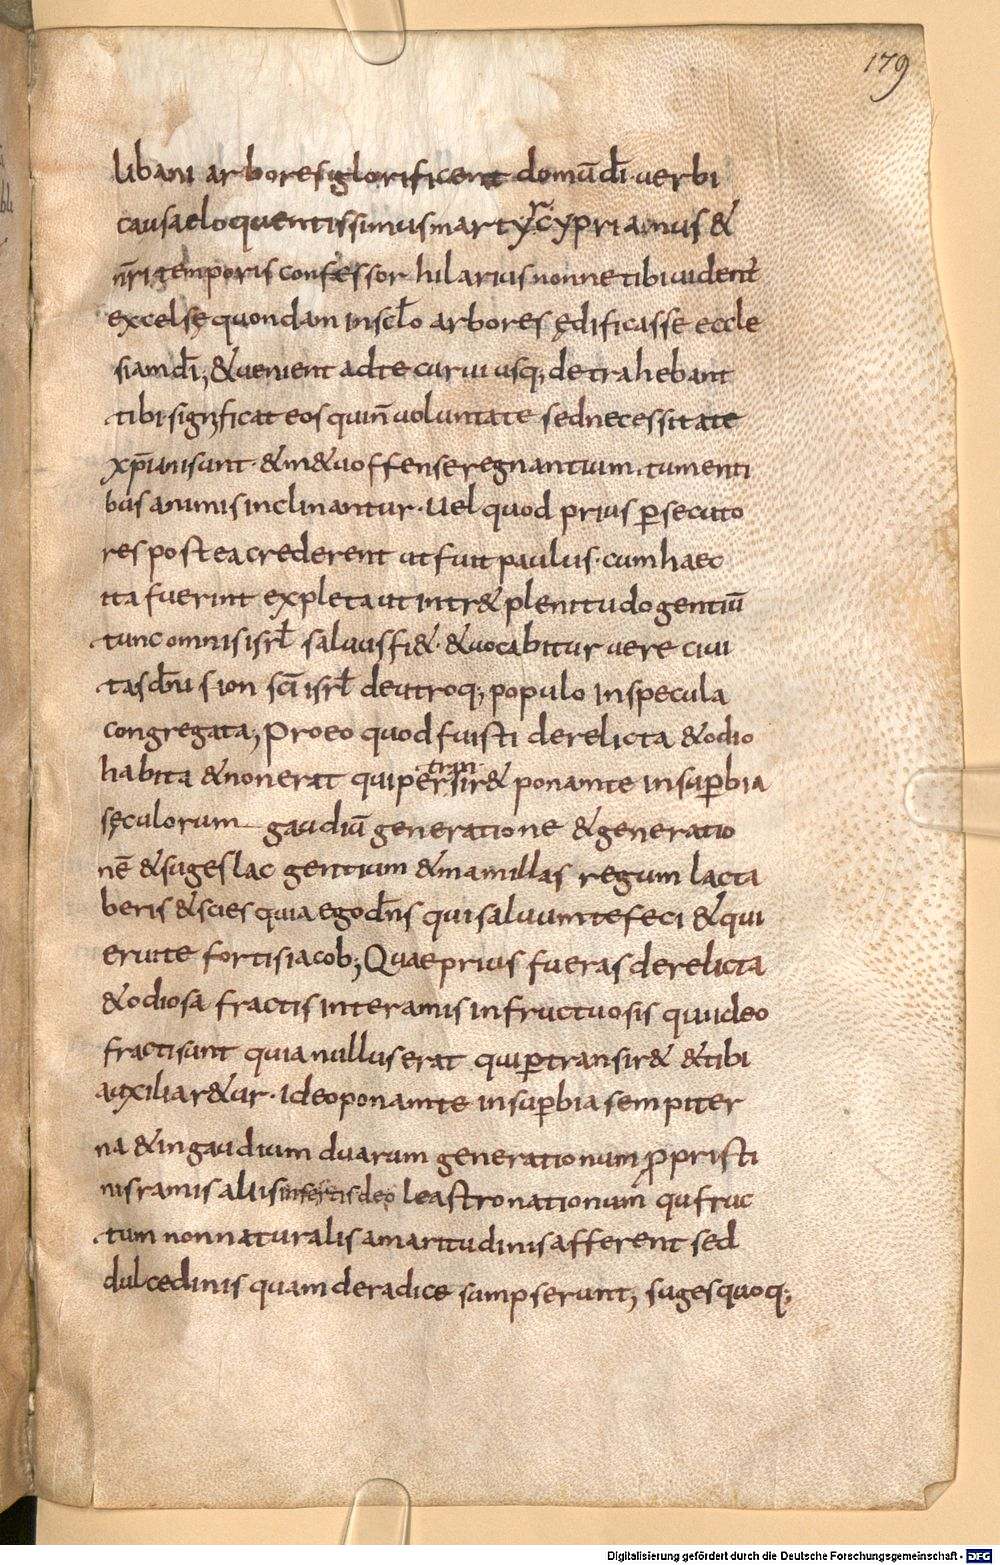 179
libani arbores glorificent domū dī · uerbi
causa eloquentissimus martyr cyprianus &
nr̄i temporis confessor hilarius nonne tibi uident
excelsę quondam in sclo arbores ędificasse eccle
siam dī; & uenient ad te curui usq; detrahebant
tibi · significat eos qui n̄ uoluntate sed necessitate
xp̄iani sunt · & in & uoffense regnantium · tumenti
bus animis inclinantur · Uel quod prius ꝑsecuto
res postea crederent ut fuit paulus · cum haec
ita fuerint expleta ut intr& plenitudo gentiū
tunc omnis isrł saluus fi& · & uocabitur uere ciui
tas dn̄i sion sc̄i isrł de utroq; populo in specula
congregata; Pro eo quod fuisti derelicta & odio
habita & non erat qui per transir& ponam te in suꝑbia
sęculorum gaudiū generatione & generatio
nē & suges lac gentium & mamillas regum lacta
beris & scies quia ego dn̄s qui saluum te feci & qui
erui te fortis iacob; Quae prius fueras derelicta
& odiosa fractis inte ramis infructuosis qui ideo
fracti sunt quia nullus erat qui ꝑtransir& & tibi
auxiliar&ur · ideo ponam te in suꝑbia sempiter
na & in gaudium duarum generationum ꝓ pristi
nis ramis aliis insertis de oleastro nationum qui fruc
tum non naturalis amaritudinis afferent sed
dulcedinis quam de radice sumpserunt; suges quoq;
Digitalisierung gefördert durch die Deutsche Forschungsgemeinschaft - DFG